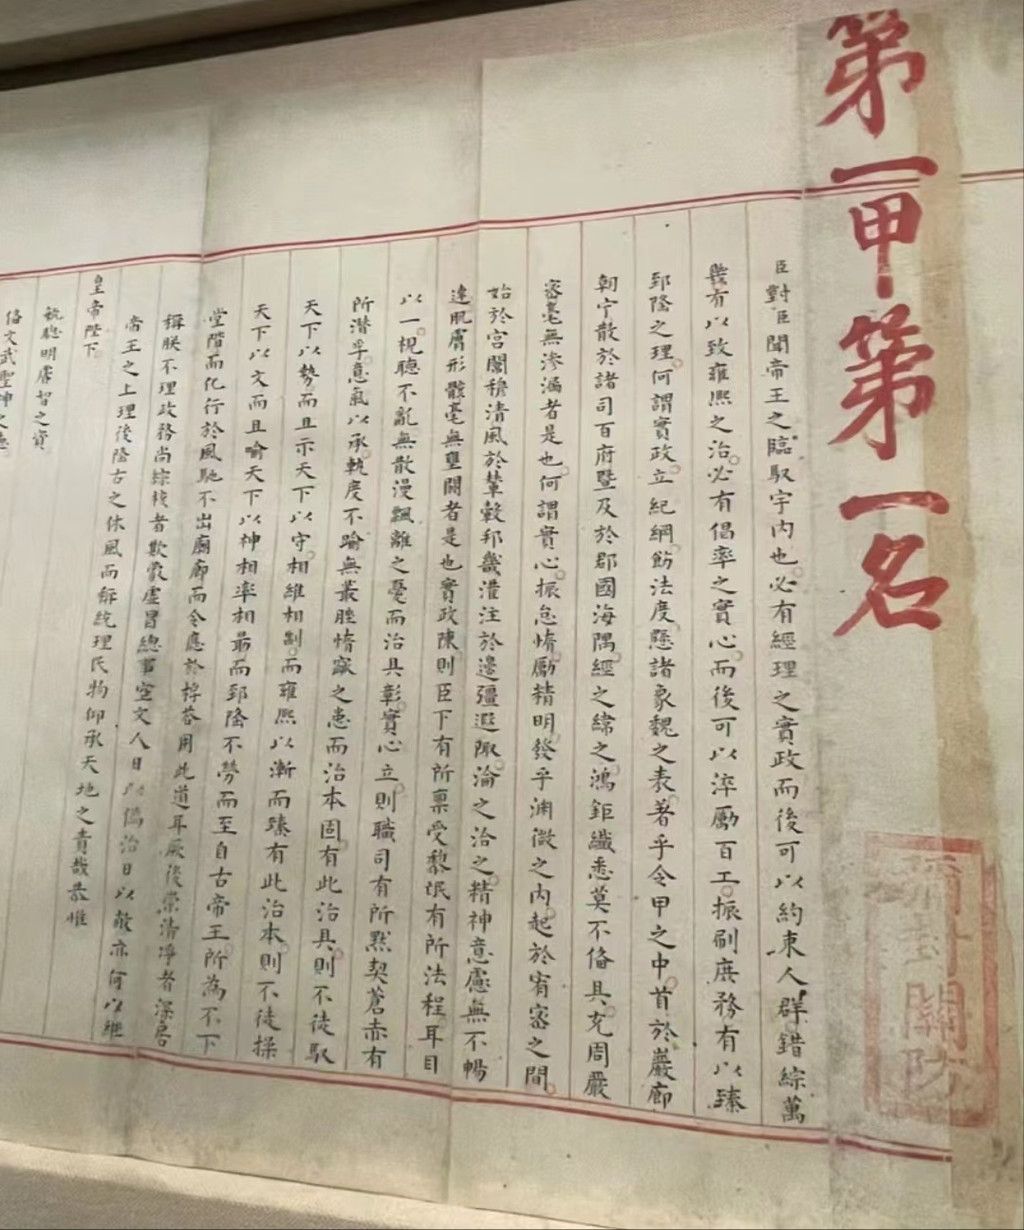 第一甲第一名
臣對臣聞帝王之臨馭宇內也必有經理之實政而後可以約束人群錯綜萬
幾有以致雍熙之治必有倡率之實心而後可以淬勵百工振刷庶務有以臻
郅隆之理何謂實政立紀綱飭法度懸諸象魏之表著乎令甲之中首於巖廊
朝宁散於諸司百府暨及於郡國海隅經之緯之鴻鉅纖悉莫不俻具充周嚴
密毫無滲漏者是也何謂實心振怠惰勵精明發乎淵微之內起於宥密之間
始於宮闈穆清風於輦轂邦畿灌注於邊疆遐陬淪之洽之精神意慮無不暢
達肌膚形骸毫無壅閼者是也實政陳則臣下有所稟受黎氓有所法程耳目
以一視聽不亂無散漫飄離之憂而治具彰實心立則職司有所默契蒼赤有
所潛孚意氣以承軌度不踰無叢脞惰窳之患而治本固有此治具則不徒馭
天下以勢而且示天下以守相維相制而雍熙以漸而臻有此治本則不徒操
天下以文而且喻天下以神相率相勗而郅隆不勞而至自古帝王所為不下
堂階而化行於風馳不出廟廊而令應於桴答用此道耳厥後崇清淨者深居
稱朕不理政務尚綜核者欺蒙虛冒總事空文人日以偽治日以敝亦何以継
帝王之上理後隆古之休風而稱統理民物仰承天地之責哉恭惟
皇帝陛下
毓聰明睿智之資
俻文武聖神之德
關防